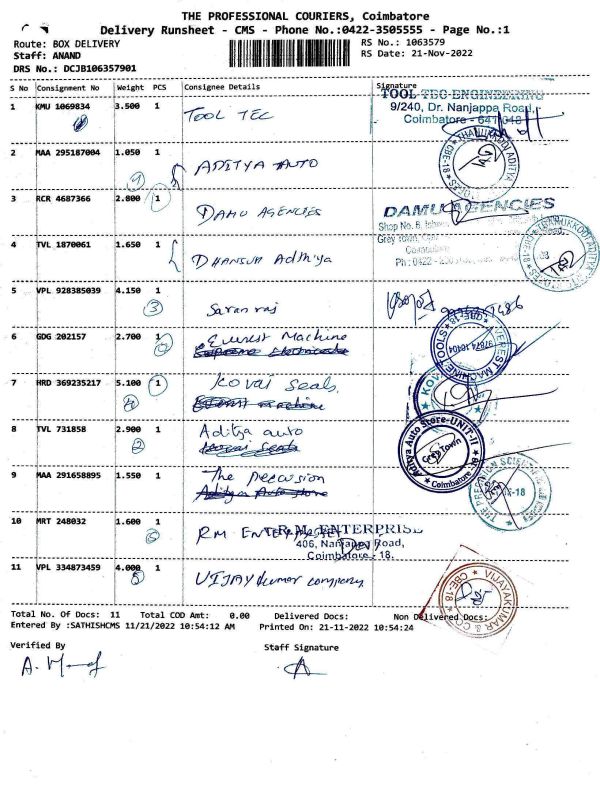 THE PROFESSIONAL COURIERS, Coimbatore
Delivery Runsheet - CMS - Phone No.:0422-3505555 - Page No.:1
Route: BOX DELIVERY
RS No.: 1063579
Staff: ANAND
RS Date: 21-Nov-2022
DRS No.: DCJB106357901
S No Consignment No Weight PCS Consignee Details Signature
1 KMU 1069834 3.500 1 TOOL TEC
TOOL TEC ENGINEERING
9/240, Dr. Nanjappa Road,
Coimbatore - 641 018
2 MAA 295187004 1.050 1 ADITYA AUTO
3 RCR 4687366 2.800 1 DAMU AGENCIES
DAMU AGENCIES
Shop No. 6,
Grey Town,
Coimbatore
Ph : 0422 -
4 TVL 1870061 1.650 1 DHANSUM Adhiya
5 VPL 928385039 4.150 1 Saranraj
3
6 GDG 202157 2.700 1 Everest Machine
EVEREST MACHINE TOOLS ★ CBE-18 ★
97874 10404
7 HRD 369235217 5.100 1 Kovai Seals
KOVAI
8 TVL 731858 2.900 1 Aditya auto
2
Kovai Seals
Adhiya Auto Store-UNIT-II
Grey Town
★ Coimbatore - 18 ★
9 MAA 291658895 1.550 1 The Precusion
Aditya Auto Store
THE PRECISION SCIEN
10 MRT 248032 1.600 1 RM ENTERPRISES
R.M. ENTERPRISE
406, Nanjappa Road,
Coimbatore - 18.
11 VPL 334873459 4.000 1 VIJAY Kumar company
VIJAYAKUMAR & CO
★ CBE-18 ★
Total No. Of Docs: 11 Total COD Amt: 0.00 Delivered Docs: Non Delivered Docs:
Entered By :SATHISHCMS 11/21/2022 10:54:12 AM Printed On: 21-11-2022 10:54:24
Verified By Staff Signature